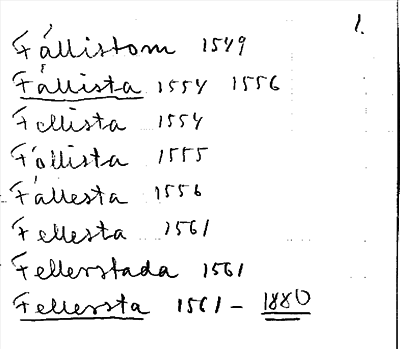 1.
Fållistom 1549
Fållista 1554 1556
Fellista 1554
Fållista 1555
Fållesta 1556
Fellesta 1561
Fellerstada 1561
Fellersta 1561 - 1880